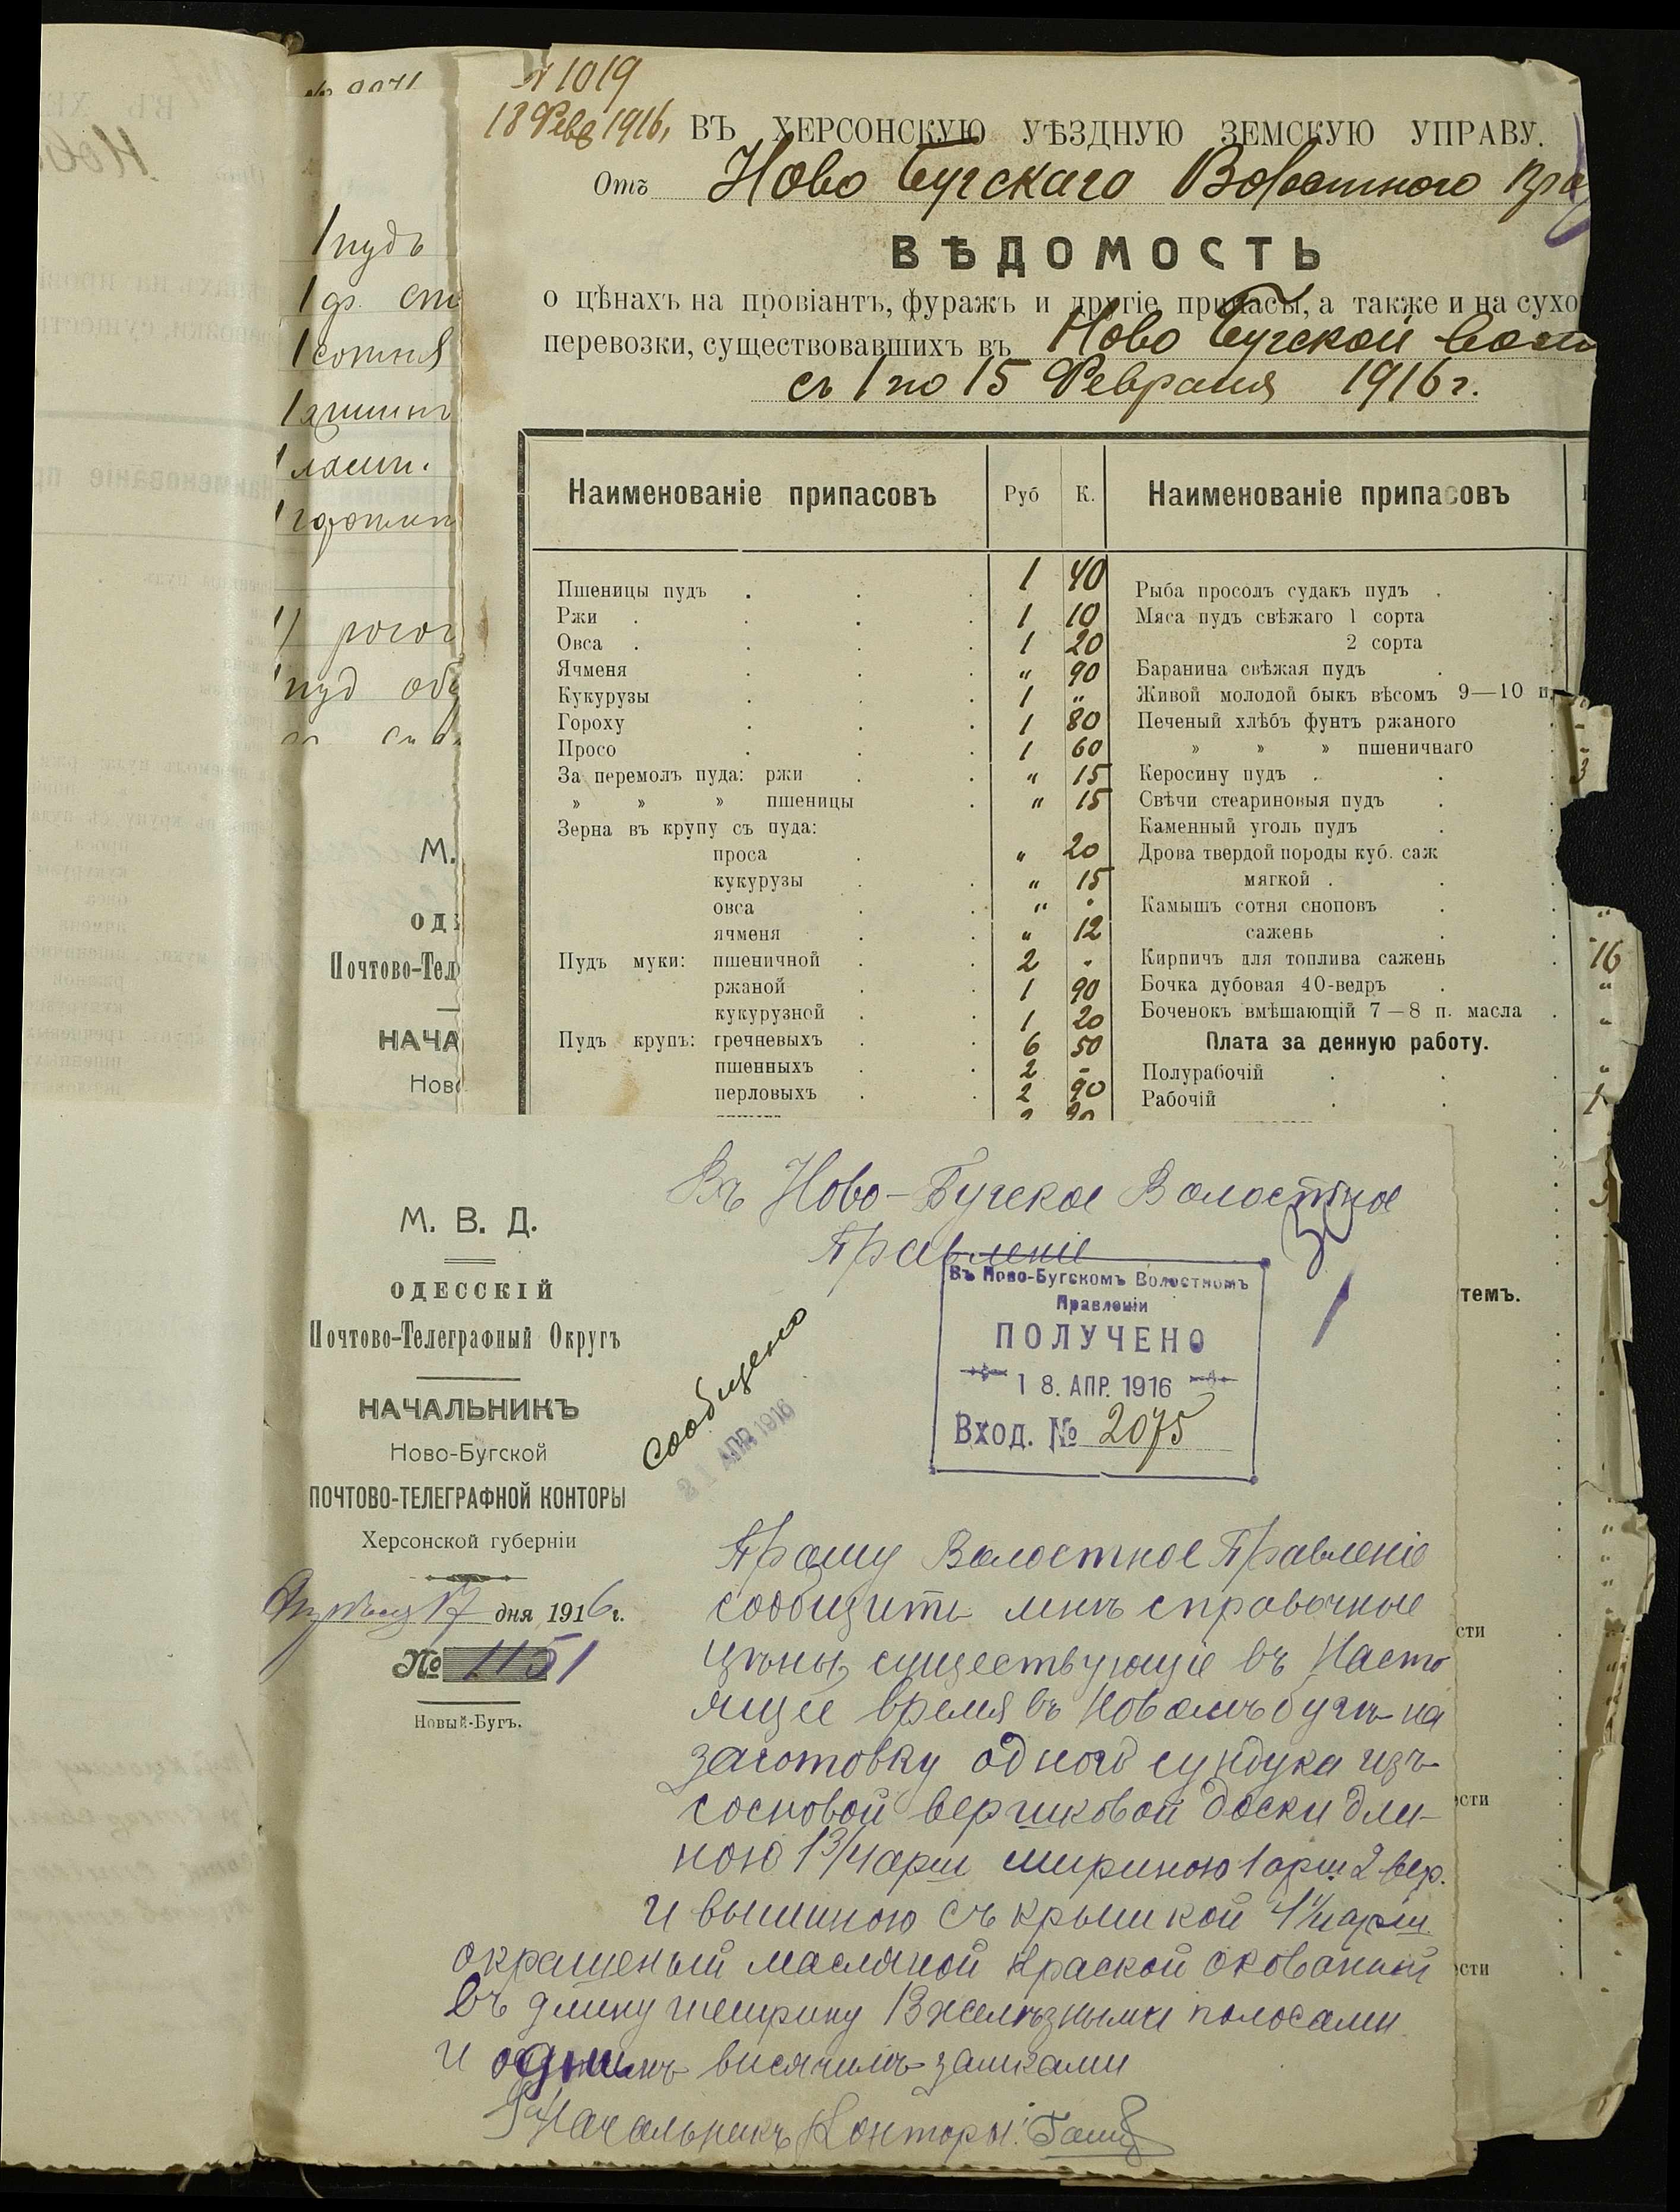 № 1019
18 Февр 1916,
ВЪ ХЕРСОНСКУЮ УѢЗДНУЮ ЗЕМСКУЮ УПРАВУ.
Отъ Ново Бугскаго Волостного
ВѢДОМОСТЬ
о цѣнахъ на провіантъ, фуражъ и другіе припасы, а также и на сухо
перевозки, существовавшихъ въ Ново Бугской
съ 1 по 15 Февраля 1916 г.
Наименованіе припасовъ Руб К. Наименованіе припасовъ
Пшеницы пудъ . . . 1 40 Рыба просолъ судакъ пудъ .
Ржи . . . . 1 10 Мяса пудъ свѣжаго 1 сорта
Овса . . . . 1 20 2 сорта
Ячменя . . . „ 90 Баранина свѣжая пудъ .
Кукурузы . . . 1 „ Живой молодой быкъ вѣсомъ 9—10 п.
Гороху . . . 1 80 Печеный хлѣбъ фунтъ ржаного
Просо . . . 1 60 » » » пшеничнаго
За перемолъ пуда: ржи . . „ 15 Керосину пудъ . .
» » » пшеницы . „ 15 Свѣчи стеариновыя пудъ .
Зерна въ крупу съ пуда: Каменный уголь пудъ .
проса . „ 20 Дрова твердой породы куб. саж
кукурузы . . „ 15 мягкой . .
овса . . „ . Камышъ сотня сноповъ . „
ячменя . . „ 12 сажень .
Пудъ муки: пшеничной . . 2 . Кирпичъ для топлива сажень . 16
ржаной . . 1 90 Бочка дубовая 40-ведръ . „
кукурузной . . 1 20 Боченокъ вмѣшающій 7—8 п. масла . „
Пудъ крупъ: гречневыхъ . . 6 50 Плата за денную работу.
пшенныхъ . . 2 - Полурабочій . . „
перловыхъ . . 2 90 Рабочій . . 1
1 пудъ
1 сотня
1 пуд
М.
Почтово-Тел
НАЧА
Ново
темъ.
сти
ости
ости
М. В. Д.
ОДЕССКІЙ
Почтово-Телеграфный Округъ
НАЧАЛЬНИКЪ
Ново-Бугской
ПОЧТОВО-ТЕЛЕГРАФНОЙ КОНТОРЫ
Херсонской губерніи
Апрѣля 17 дня 1916 г.
№ 1151
Новый-Бугъ.
Въ Ново-Бугское Волостное
Правленіе
Въ Ново-Бугскомъ Волостномъ
Правленіи
ПОЛУЧЕНО
18. АПР. 1916
Вход. № 2075
Сообщено
21 АПР 1916
Прошу Волостное Правленіе
сообщить мнѣ справочные
цѣны, существующіе въ насто
ящее время въ Новомъ Бугѣ на
заготовку одного сундука изъ
сосновой вершковой доски дли-
ною 1 3/4 арш шириною 1 арш. 2 вер.
и вышиною съ крышкой 1 1/4 арш.
окрашеный масляной краской окованый
въ длину и ширину 13 желѣзными полосами
и однимъ висячимъ замками
Начальникъ Конторы: